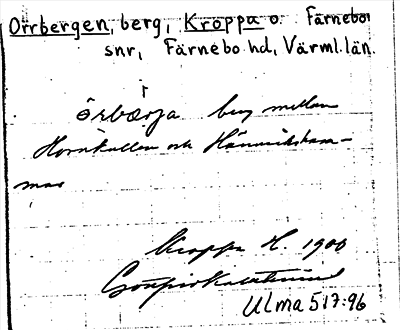 Orrbergen, berg, Kroppa o. Färnebo
snr, Färnebo hd, Värml. län.
örbærja berg mellan
Hornkullen och
Kroppa H. 1900
Ulma 517:96